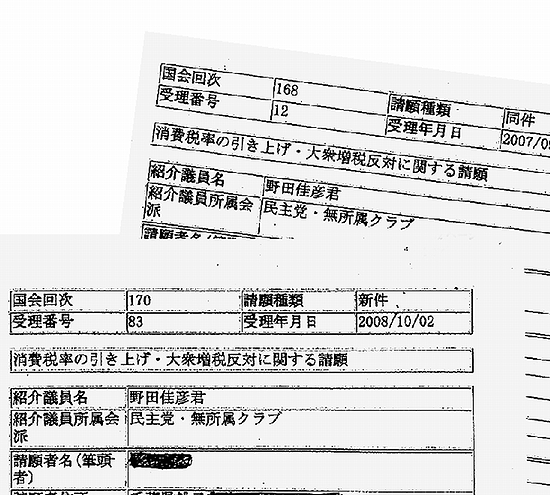 国会回次 168
受理番号 12 請願種類 同件
受理年月日 2007/09
消費税率の引き上げ・大衆増税反対に関する請願
紹介議員名 野田佳彦君
紹介議員所属会派 民主党・無所属クラブ
国会回次 170 請願種類 新件
受理番号 83 受理年月日 2008/10/02
消費税率の引き上げ・大衆増税反対に関する請願
紹介議員名 野田佳彦君
紹介議員所属会 民主党・無所属クラブ
派
請願者名(筆頭
者)